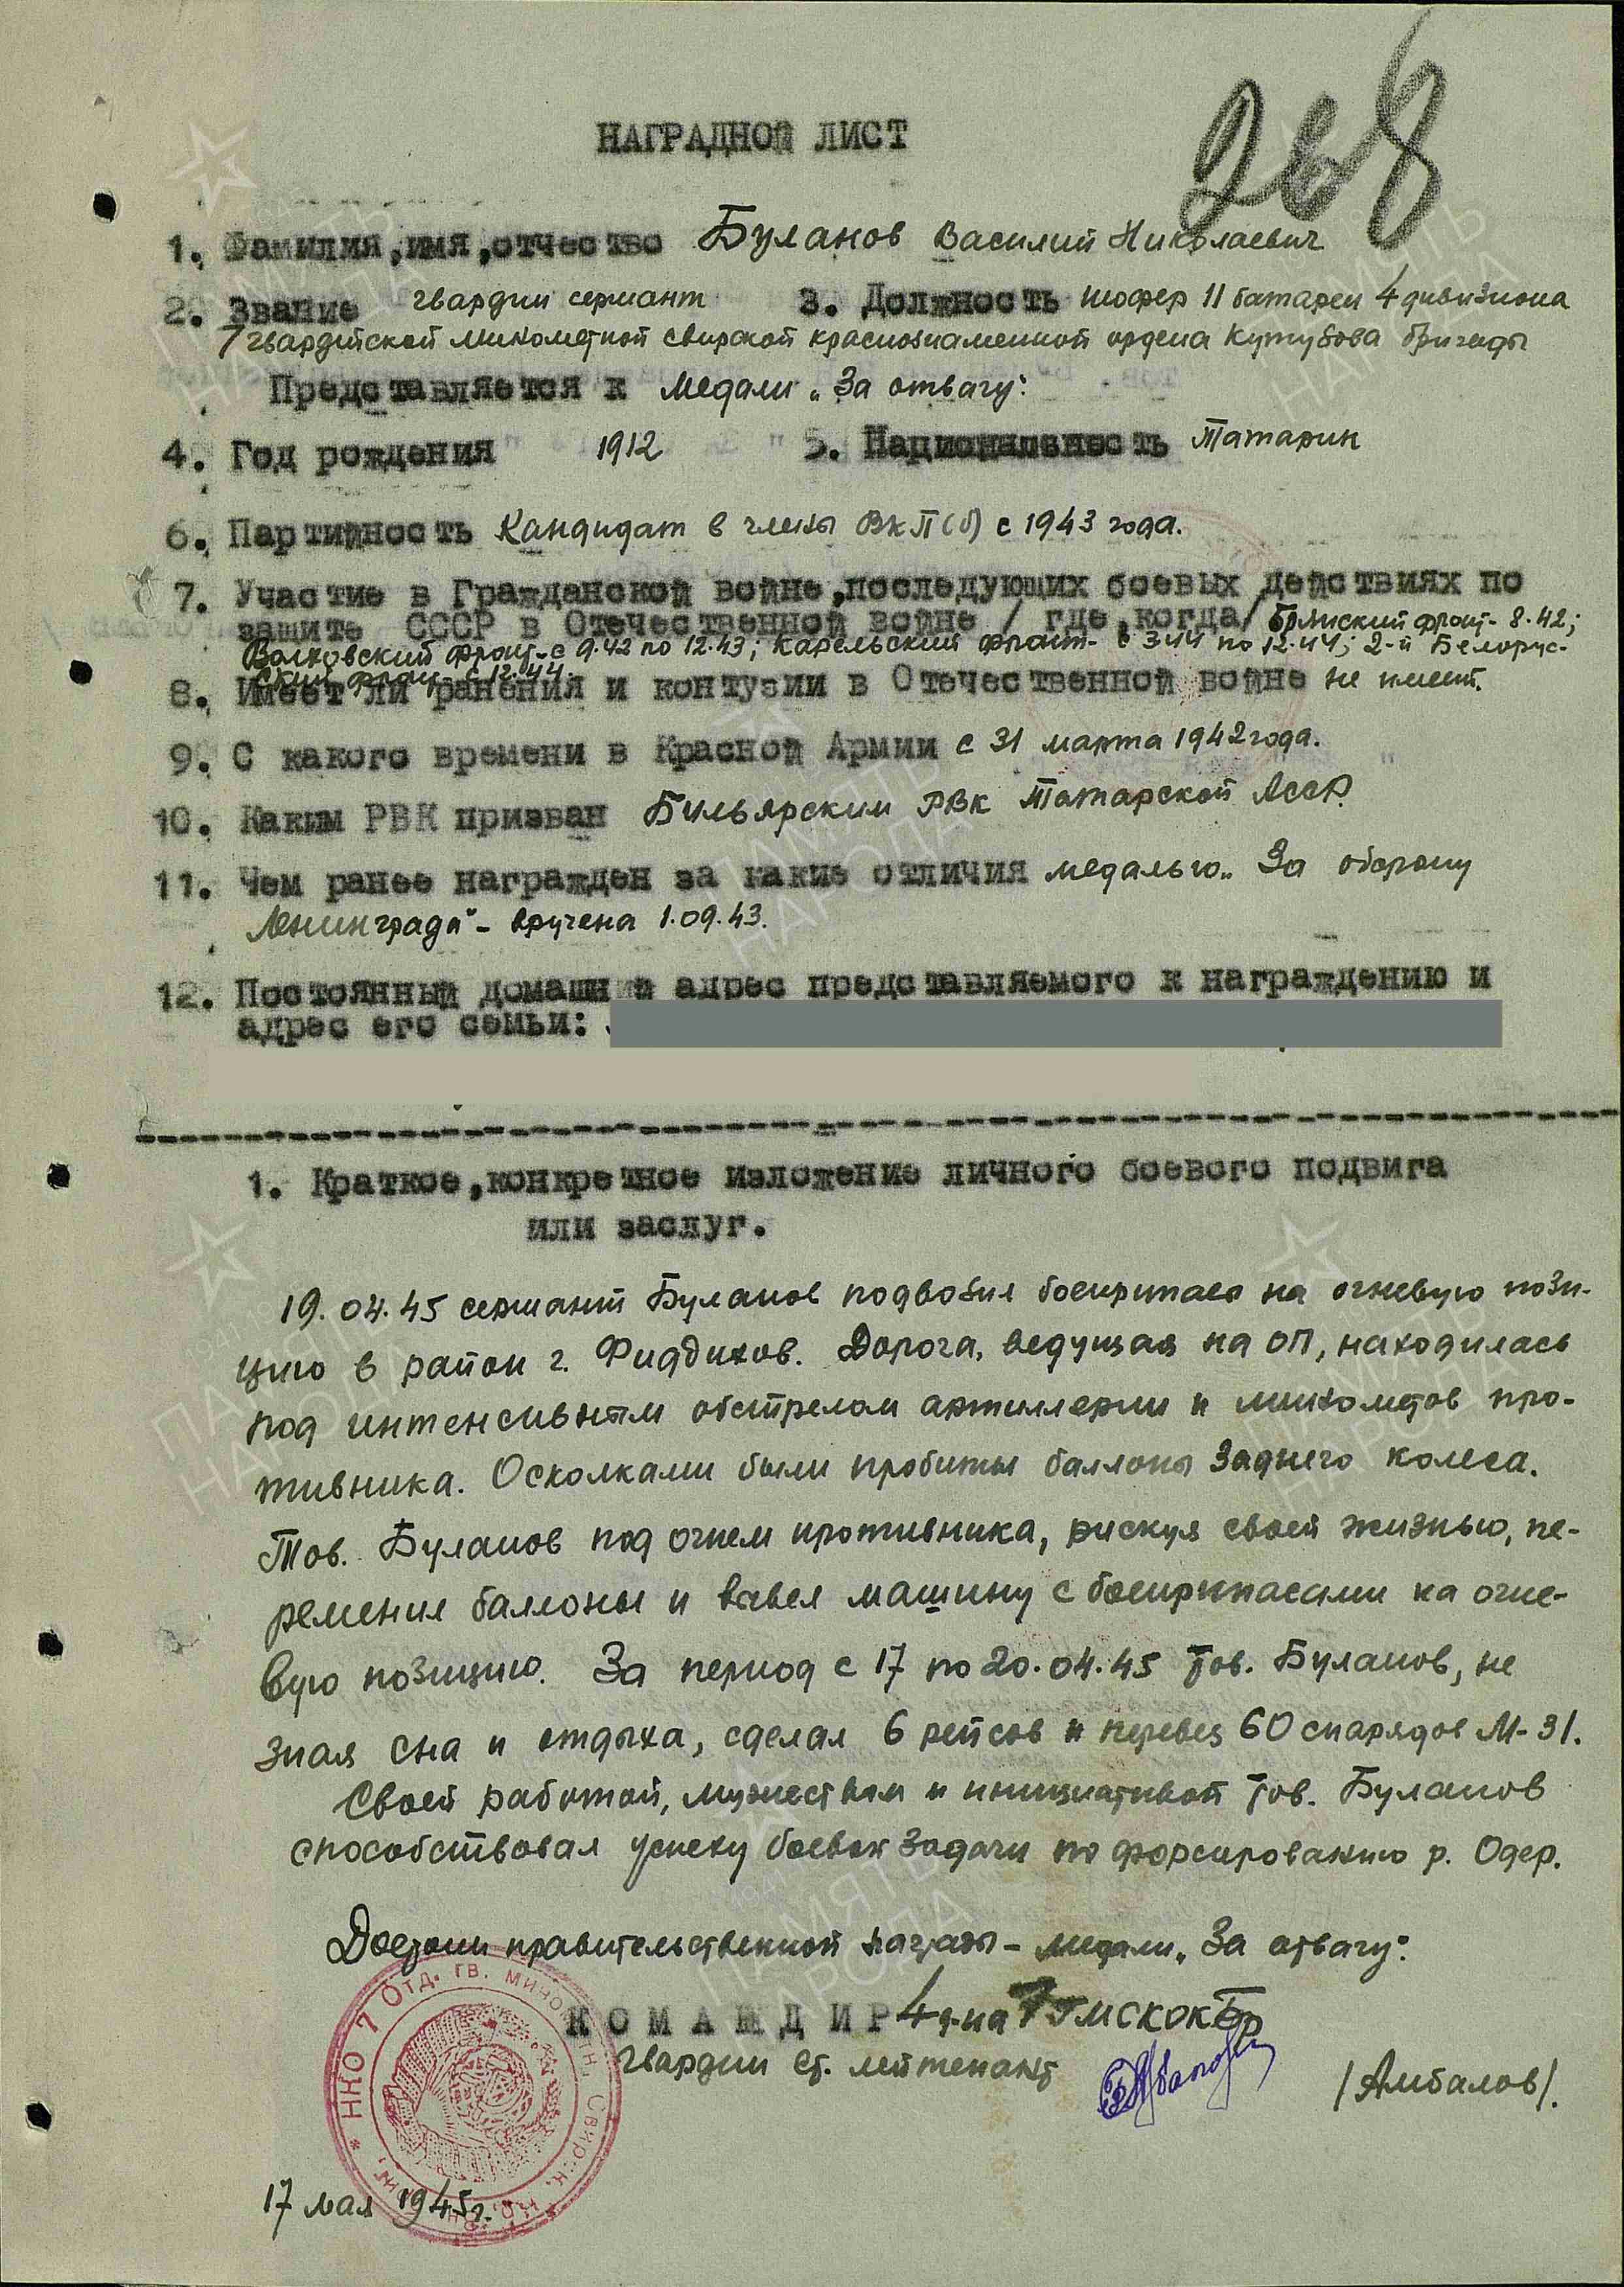 268
НАГРАДНОЙ ЛИСТ
1. Фамилия, имя, отчество Буланов Василий Николаевич
2. Звание гвардии сержант 3. Должность шофер 11 батареи 4 дивизиона
7 гвардейской минометной свирской краснознаменной ордена Кутузова бригады
Представляется к медали „За отвагу“.
4. Год рождения 1912 5. Национальность Татарин
6. Партийность Кандидат в члены ВКП(б) с 1943 года.
7. Участие в Гражданской войне, последующих боевых действиях по
защите СССР в Отечественной войне / где, когда/ Брянский фронт - 8.42;
Волховский фронт - с 9.42 по 12.43; Карельский фронт - с 3.44 по 12.44; 2-й Белорус-
ский фронт - с 12.44.
8. Имеет ли ранения и контузии в Отечественной войне не имеет.
9. С какого времени в Красной Армии с 31 марта 1942 года.
10. Каким РВК призван Бильярским РВК Татарской АССР.
11. Чем ранее награжден за какие отличия медалью „За оборону
Ленинграда“ - вручена 1.09.43.
12. Постоянный домашний адрес представляемого к награждению и
адрес его семьи:
1. Краткое, конкретное изложение личного боевого подвига
или заслуг.
19.04.45 сержант Буланов подвозил боеприпасы на огневую пози-
цию в район г. Фиддихов. Дорога, ведущая на ОП, находилась
под интенсивным обстрелом артиллерии и минометов про-
тивника. Осколками были пробиты баллоны заднего колеса.
Тов. Буланов под огнем противника, рискуя своей жизнью, пе-
ременил баллоны и вывел машину с боеприпасами на огне-
вую позицию. За период с 17 по 20.04.45 тов. Буланов, не
зная сна и отдыха, сделал 6 рейсов и перевез 60 снарядов М-31.
Своей работой, мужеством и инициативой тов. Буланов
способствовал успеху боевой задачи по форсированию р. Одер.
Достоин правительственной награды - медали „За отвагу“.
КОМАНДИР 4 д-на 7 ГМСКОКБр
гвардии ст. лейтенант /Амбалов/.
17 мая 1945 г.
НКО 7 ОТД. ГВ. МИНОМЕТН. СВИРСК.
ПАМЯТЬ НАРОДА